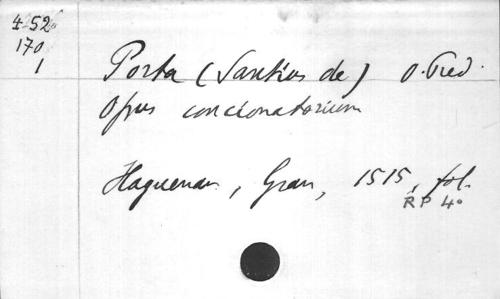 4-52
170
1
Porta (Santius de) O. Pred.
Opus concionatorium
Haguenau, Gran, 1515, fol.
RP 40